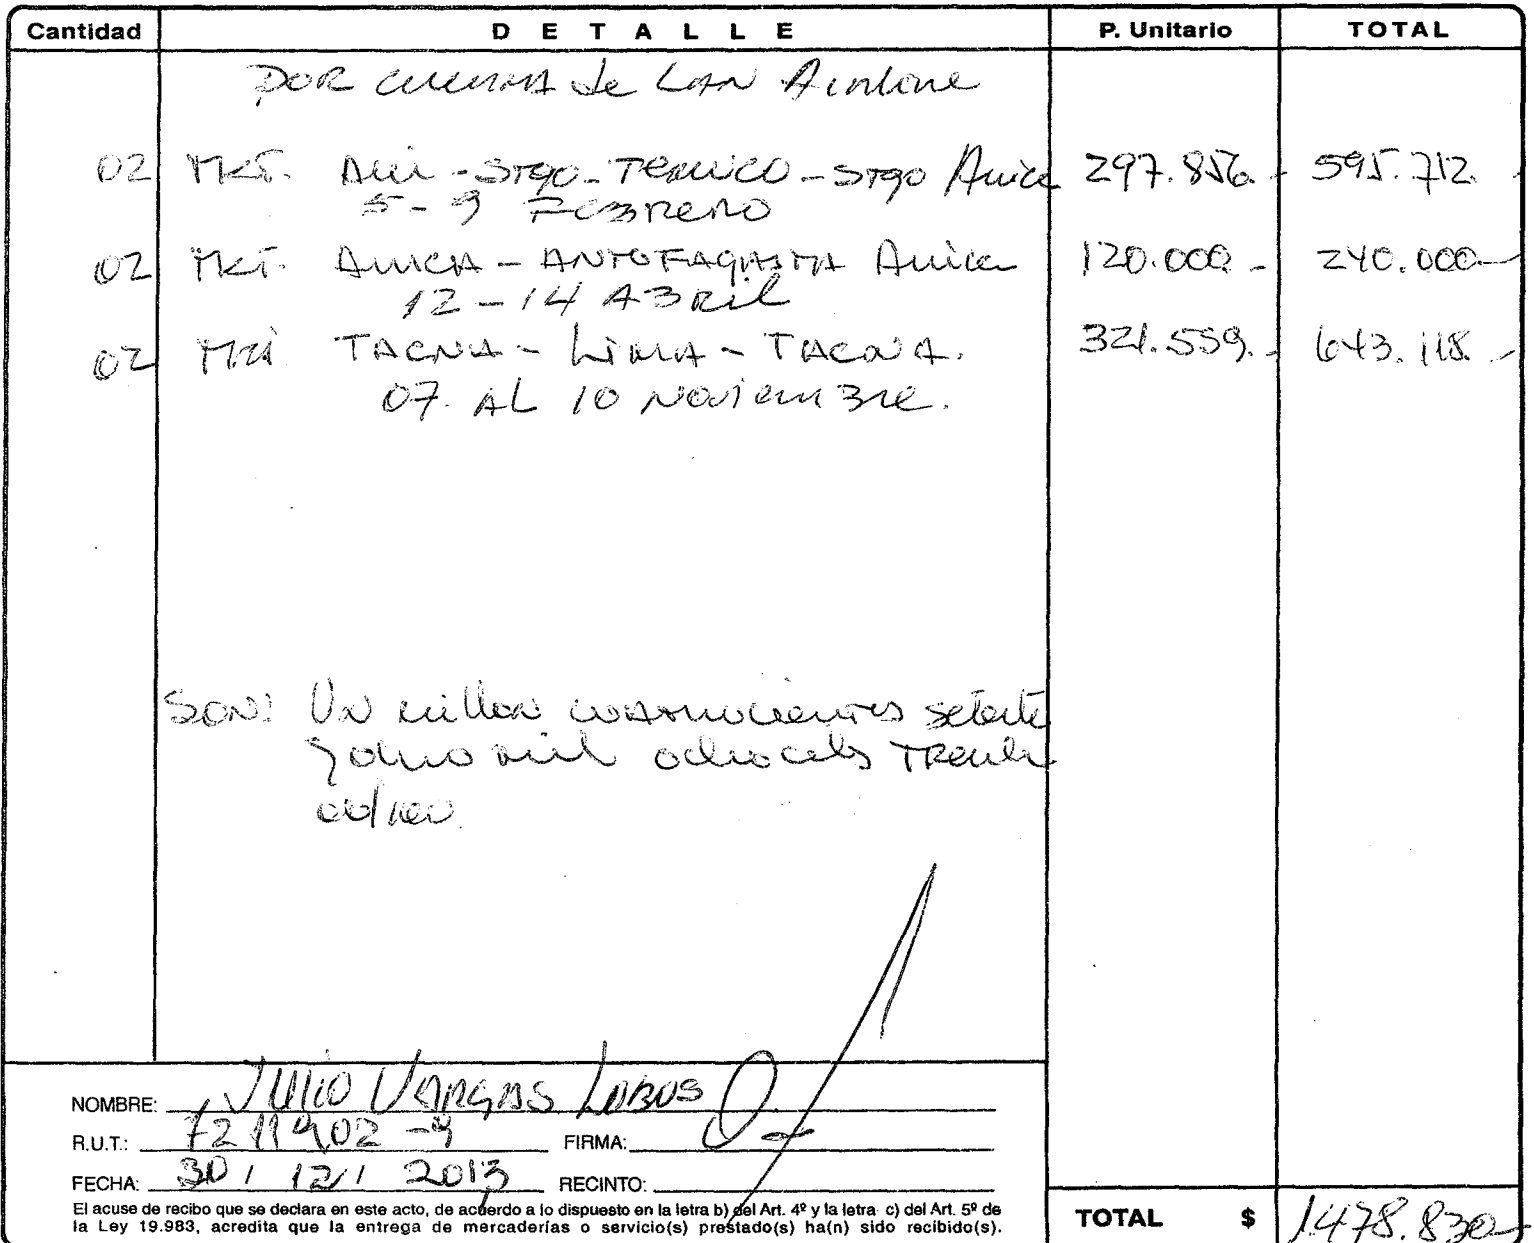 Cantidad DETALLE P. Unitario TOTAL
POR cuenta de LAN Airline
02 TKT. Ari-STgo-Temuco-STgo Arica 297.856.- 595.712.-
5-9 Febrero
02 TKT. Arica-ANTOFAGASTA Arica 120.000.- 240.000.-
12-14 ABRil
02 TKT TACNA-LIMA-TACNA. 321.559.- 643.118.-
07. AL 10 Noviembre.
SON: Un millon cuatrocientos setenta
y ocho mil TReinta
NOMBRE: JULIO VARGAS LOBOS
R.U.T.: 7211902-9 FIRMA:
FECHA: 30 / 12 / 2013 RECINTO:
El acuse de recibo que se declara en este acto, de acuerdo a lo dispuesto en la letra b) del Art. 4º y la letra c) del Art. 5º de
la Ley 19.983, acredita que la entrega de mercaderías o servicio(s) prestado(s) ha(n) sido recibido(s).
TOTAL $ 1.478.830-